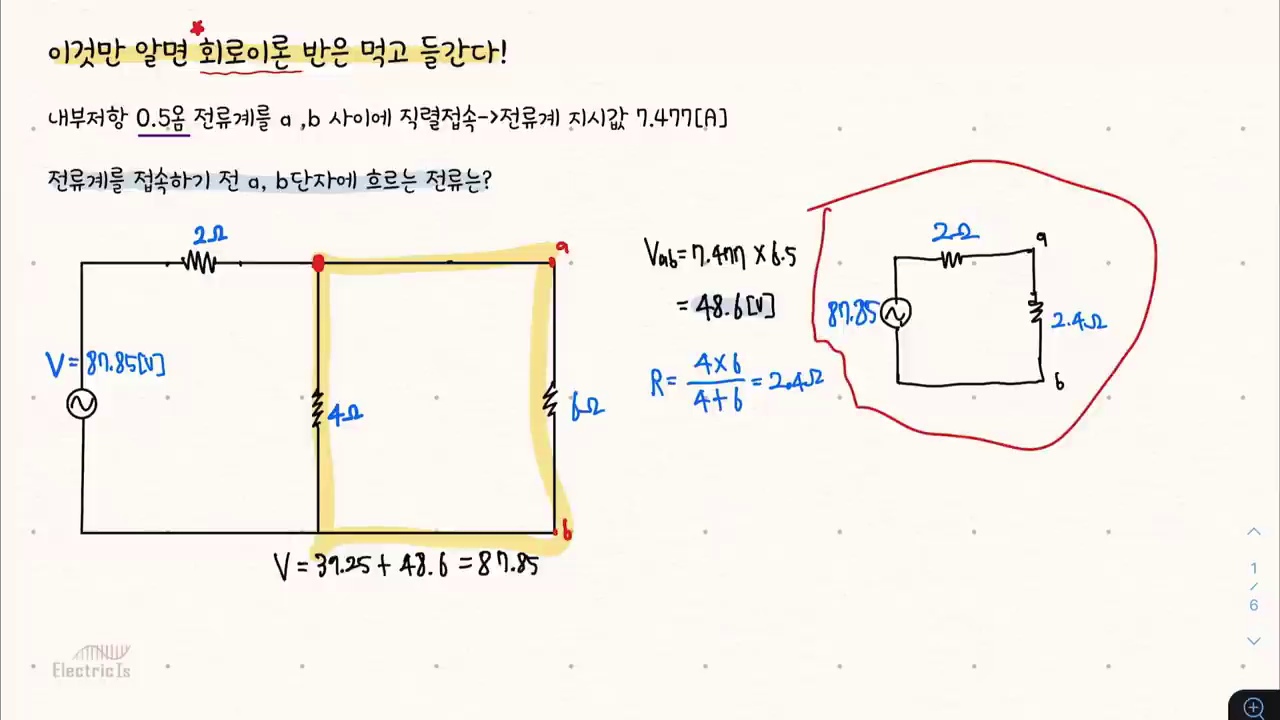 이것만 알면 회로이론 반은 먹고 들간다!
내부저항 0.5옴 전류계를 a ,b 사이에 직렬접속->전류계 지시값 7.477[A]
전류계를 접속하기 전 a, b단자에 흐르는 전류는?
2Ω
a
V=87.85[V]
4Ω
6Ω
b
V=39.25+48.6=87.85
Vab=7.477×6.5
=48.6[V]
R=4×6/4+6=2.4Ω
2Ω
a
87.85
2.4Ω
b
1
/
6
ElectricIs